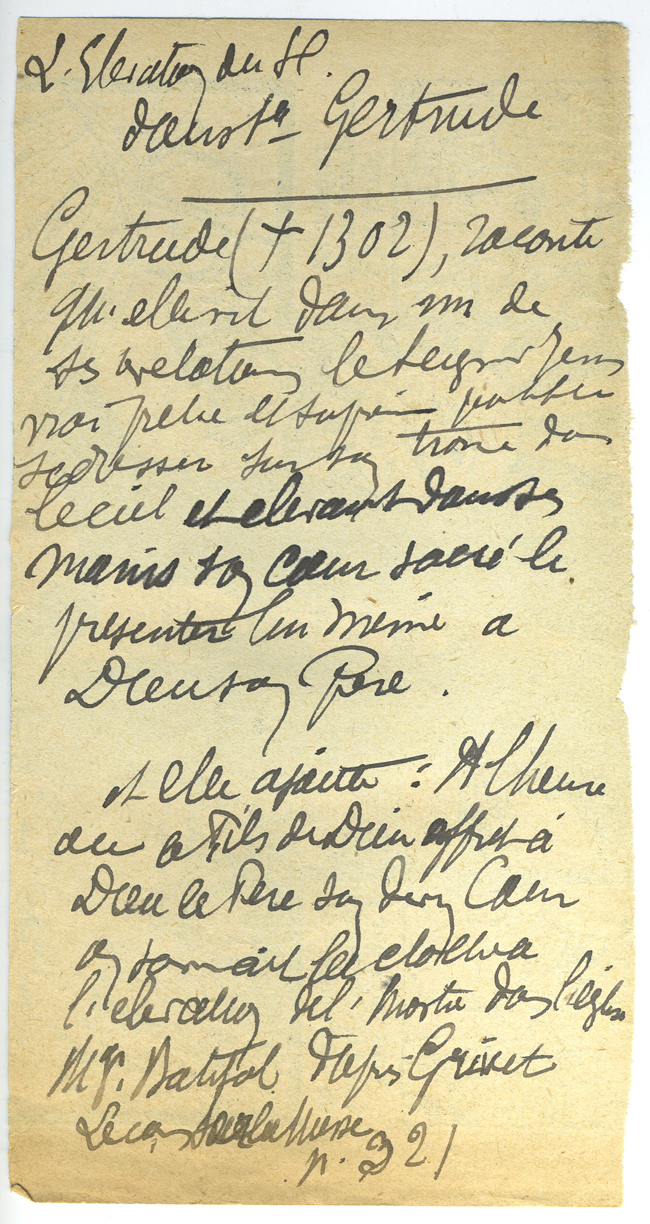 L'Elevation du St.
dans Ste Gertrude
Gertrude († 1302), raconte
qu'elle vit dans un de
ses revelations le Seigneur Jesus
vrai pretre et supreme pontife
se dresser sur son trone dans
le ciel et elevant dans ses
mains son Cœur sacré le
presenter lui meme a
Dieu son Père.
et elle ajoute : A l'heure
ou le Fils de Dieu offrit à
Dieu le Pere son divin Cœur
on sonnait les cloches a
l'elevation de l'hostie dans l'église
Mgr. Batifol d'apres Grisset
Leçons sur la Messe
p. 321